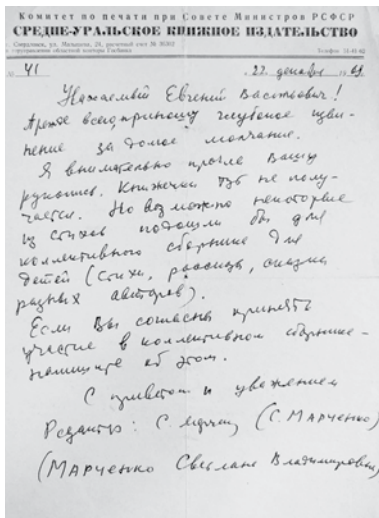 Комитет по печати при Совете Министров РСФСР
СРЕДНЕ-УРАЛЬСКОЕ КНИЖНОЕ ИЗДАТЕЛЬСТВО
г. Свердловск, ул. Малышева, 24, расчетный счет №
областной конторы Госбанка Телефон
№ 41 „22 декабря 196
Уважаемый Евгений Васильевич!
Прежде всего, приношу глубокое изви-
нение за долгое молчание.
Я внимательно прочла Вашу
рукопись. Книжечки тут не полу-
чается. Но возможно некоторые
из стихов подошли бы для
коллективного сборника для
детей (стихи, рассказы, сказки
разных авторов).
Если Вы согласны принять
участие в коллективном сборнике -
напишите об этом.
С приветом и уважением
Редактор: (С. Марченко)
(Марченко Светлана Владимировна)